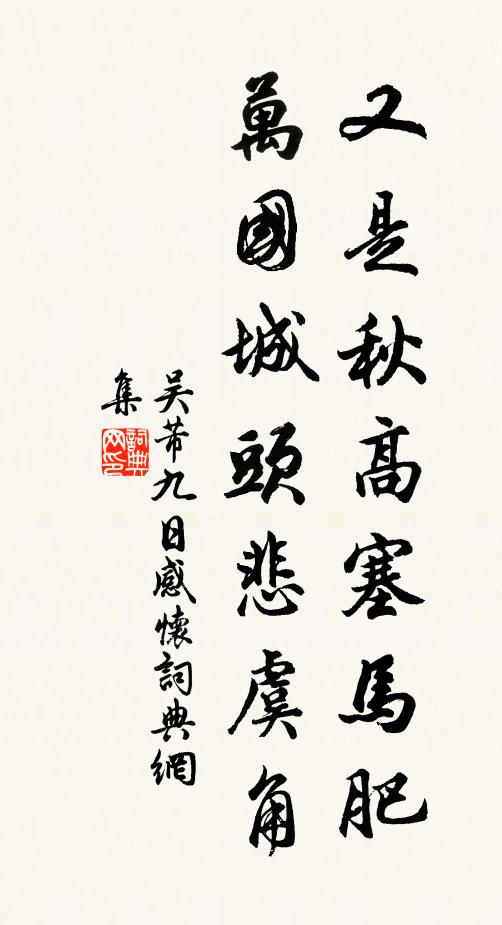 又是秋高塞馬肥
萬國城頭悲虞角
吳芾九日感懷詞典網
集
詞典
网印